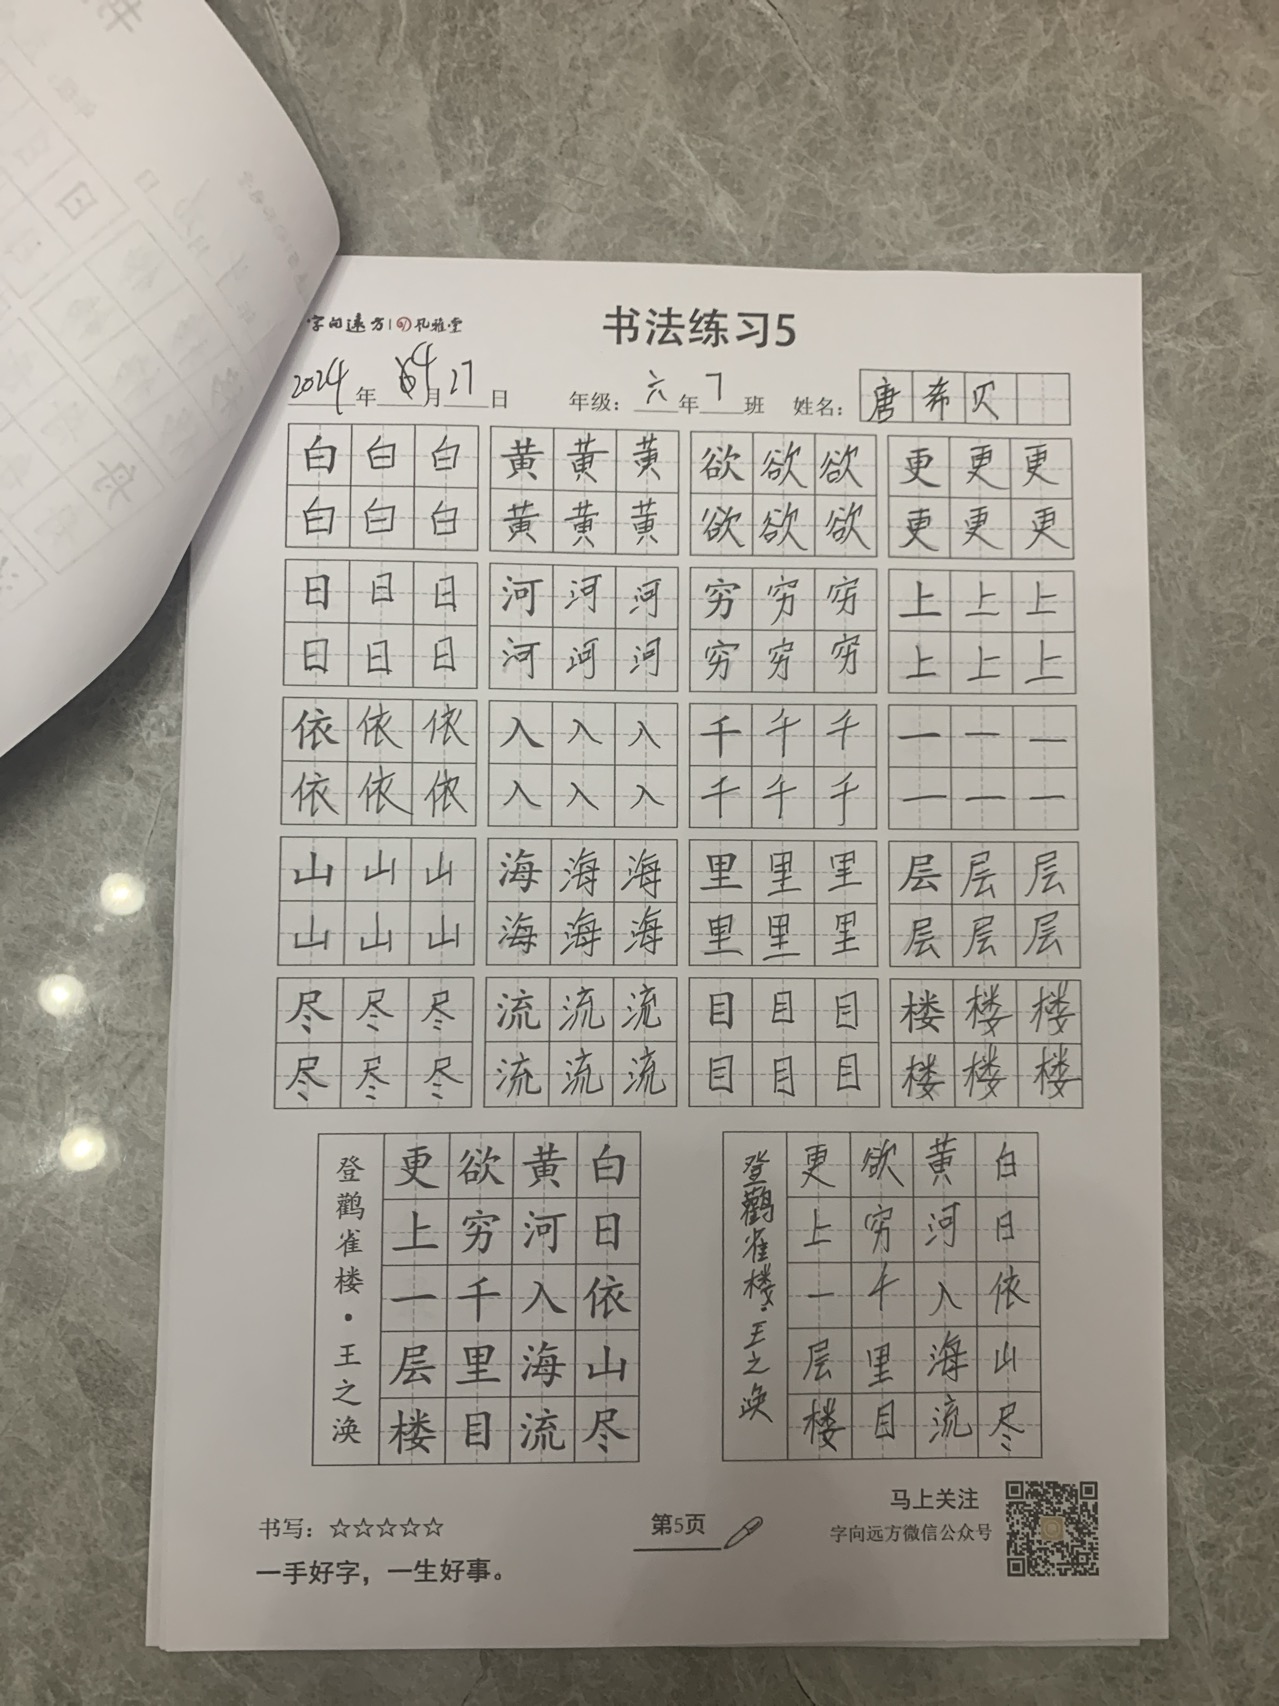 字向远方 | 孔雅堂
书法练习5
2024年4月27日 年级：六年7班 姓名：唐希贝
白白白 黄黄黄 欲欲欲 更更更
白白白 黄黄黄 欲欲欲 更更更
日日日 河河河 穷穷穷 上上上
日日日 河河河 穷穷穷 上上上
依依依 入入入 千千千 一一一
依依依 入入入 千千千 一一一
山山山 海海海 里里里 层层层
山山山 海海海 里里里 层层层
尽尽尽 流流流 目目目 楼楼楼
尽尽尽 流流流 目目目 楼楼楼
白日依山尽
黄河入海流
欲穷千里目
更上一层楼
登鹳雀楼·王之涣
白日依山尽
黄河入海流
欲穷千里目
更上一层楼
登鹳雀楼·王之涣
书写：☆☆☆☆☆
一手好字，一生好事。
第5页
马上关注
字向远方微信公众号